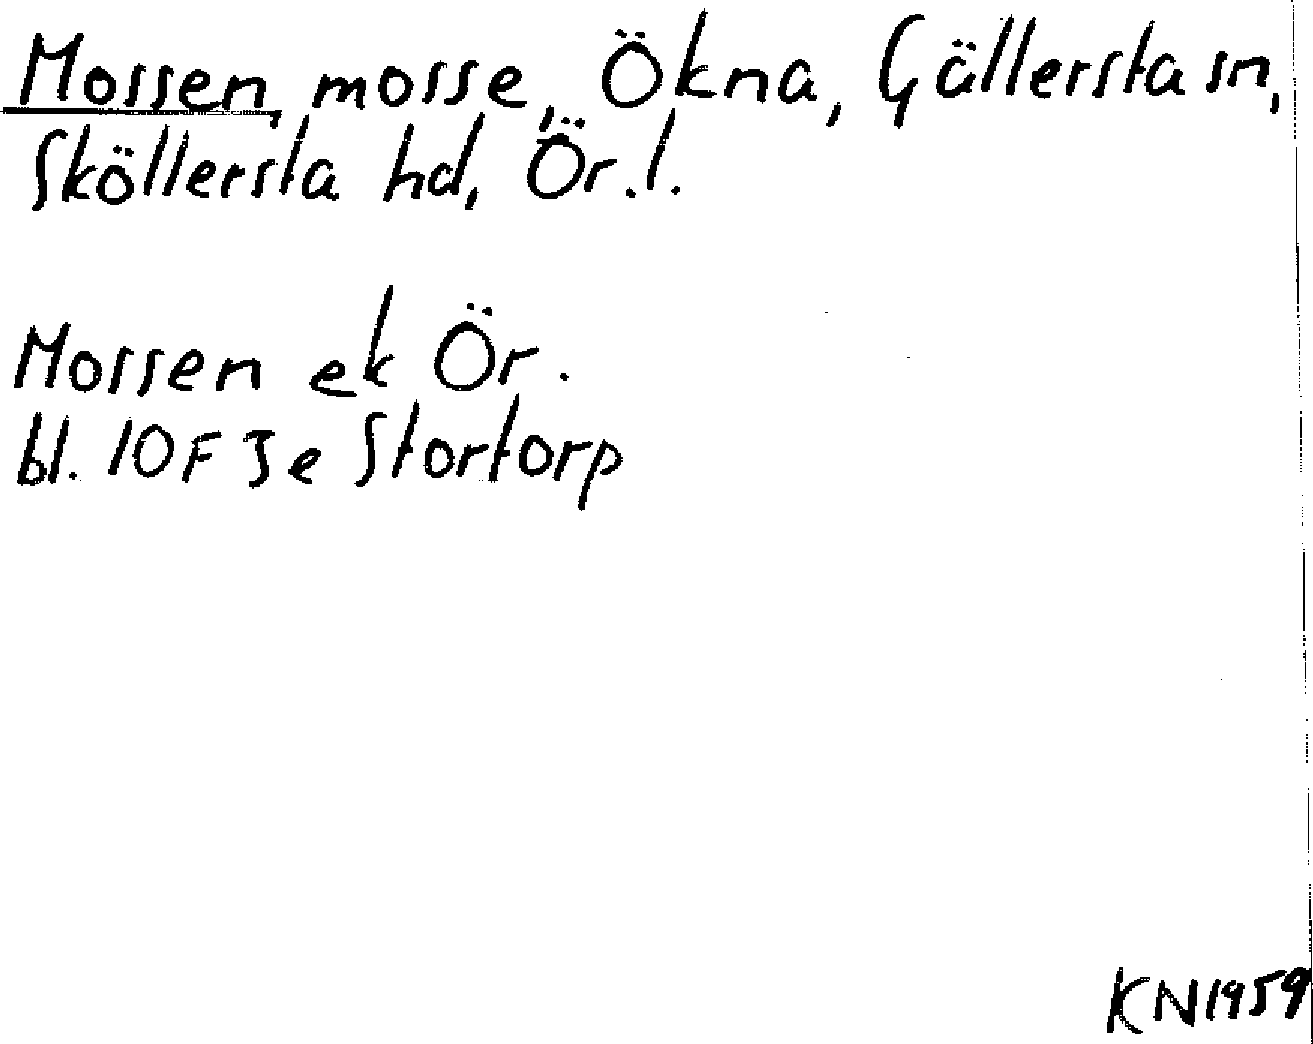 Mossen, mosse, Ökna, Gällersta sn,
Sköllersta hd, Ör. l.
Mossen ek Ör.
bl. 10F 3e Stortorp
KN1959